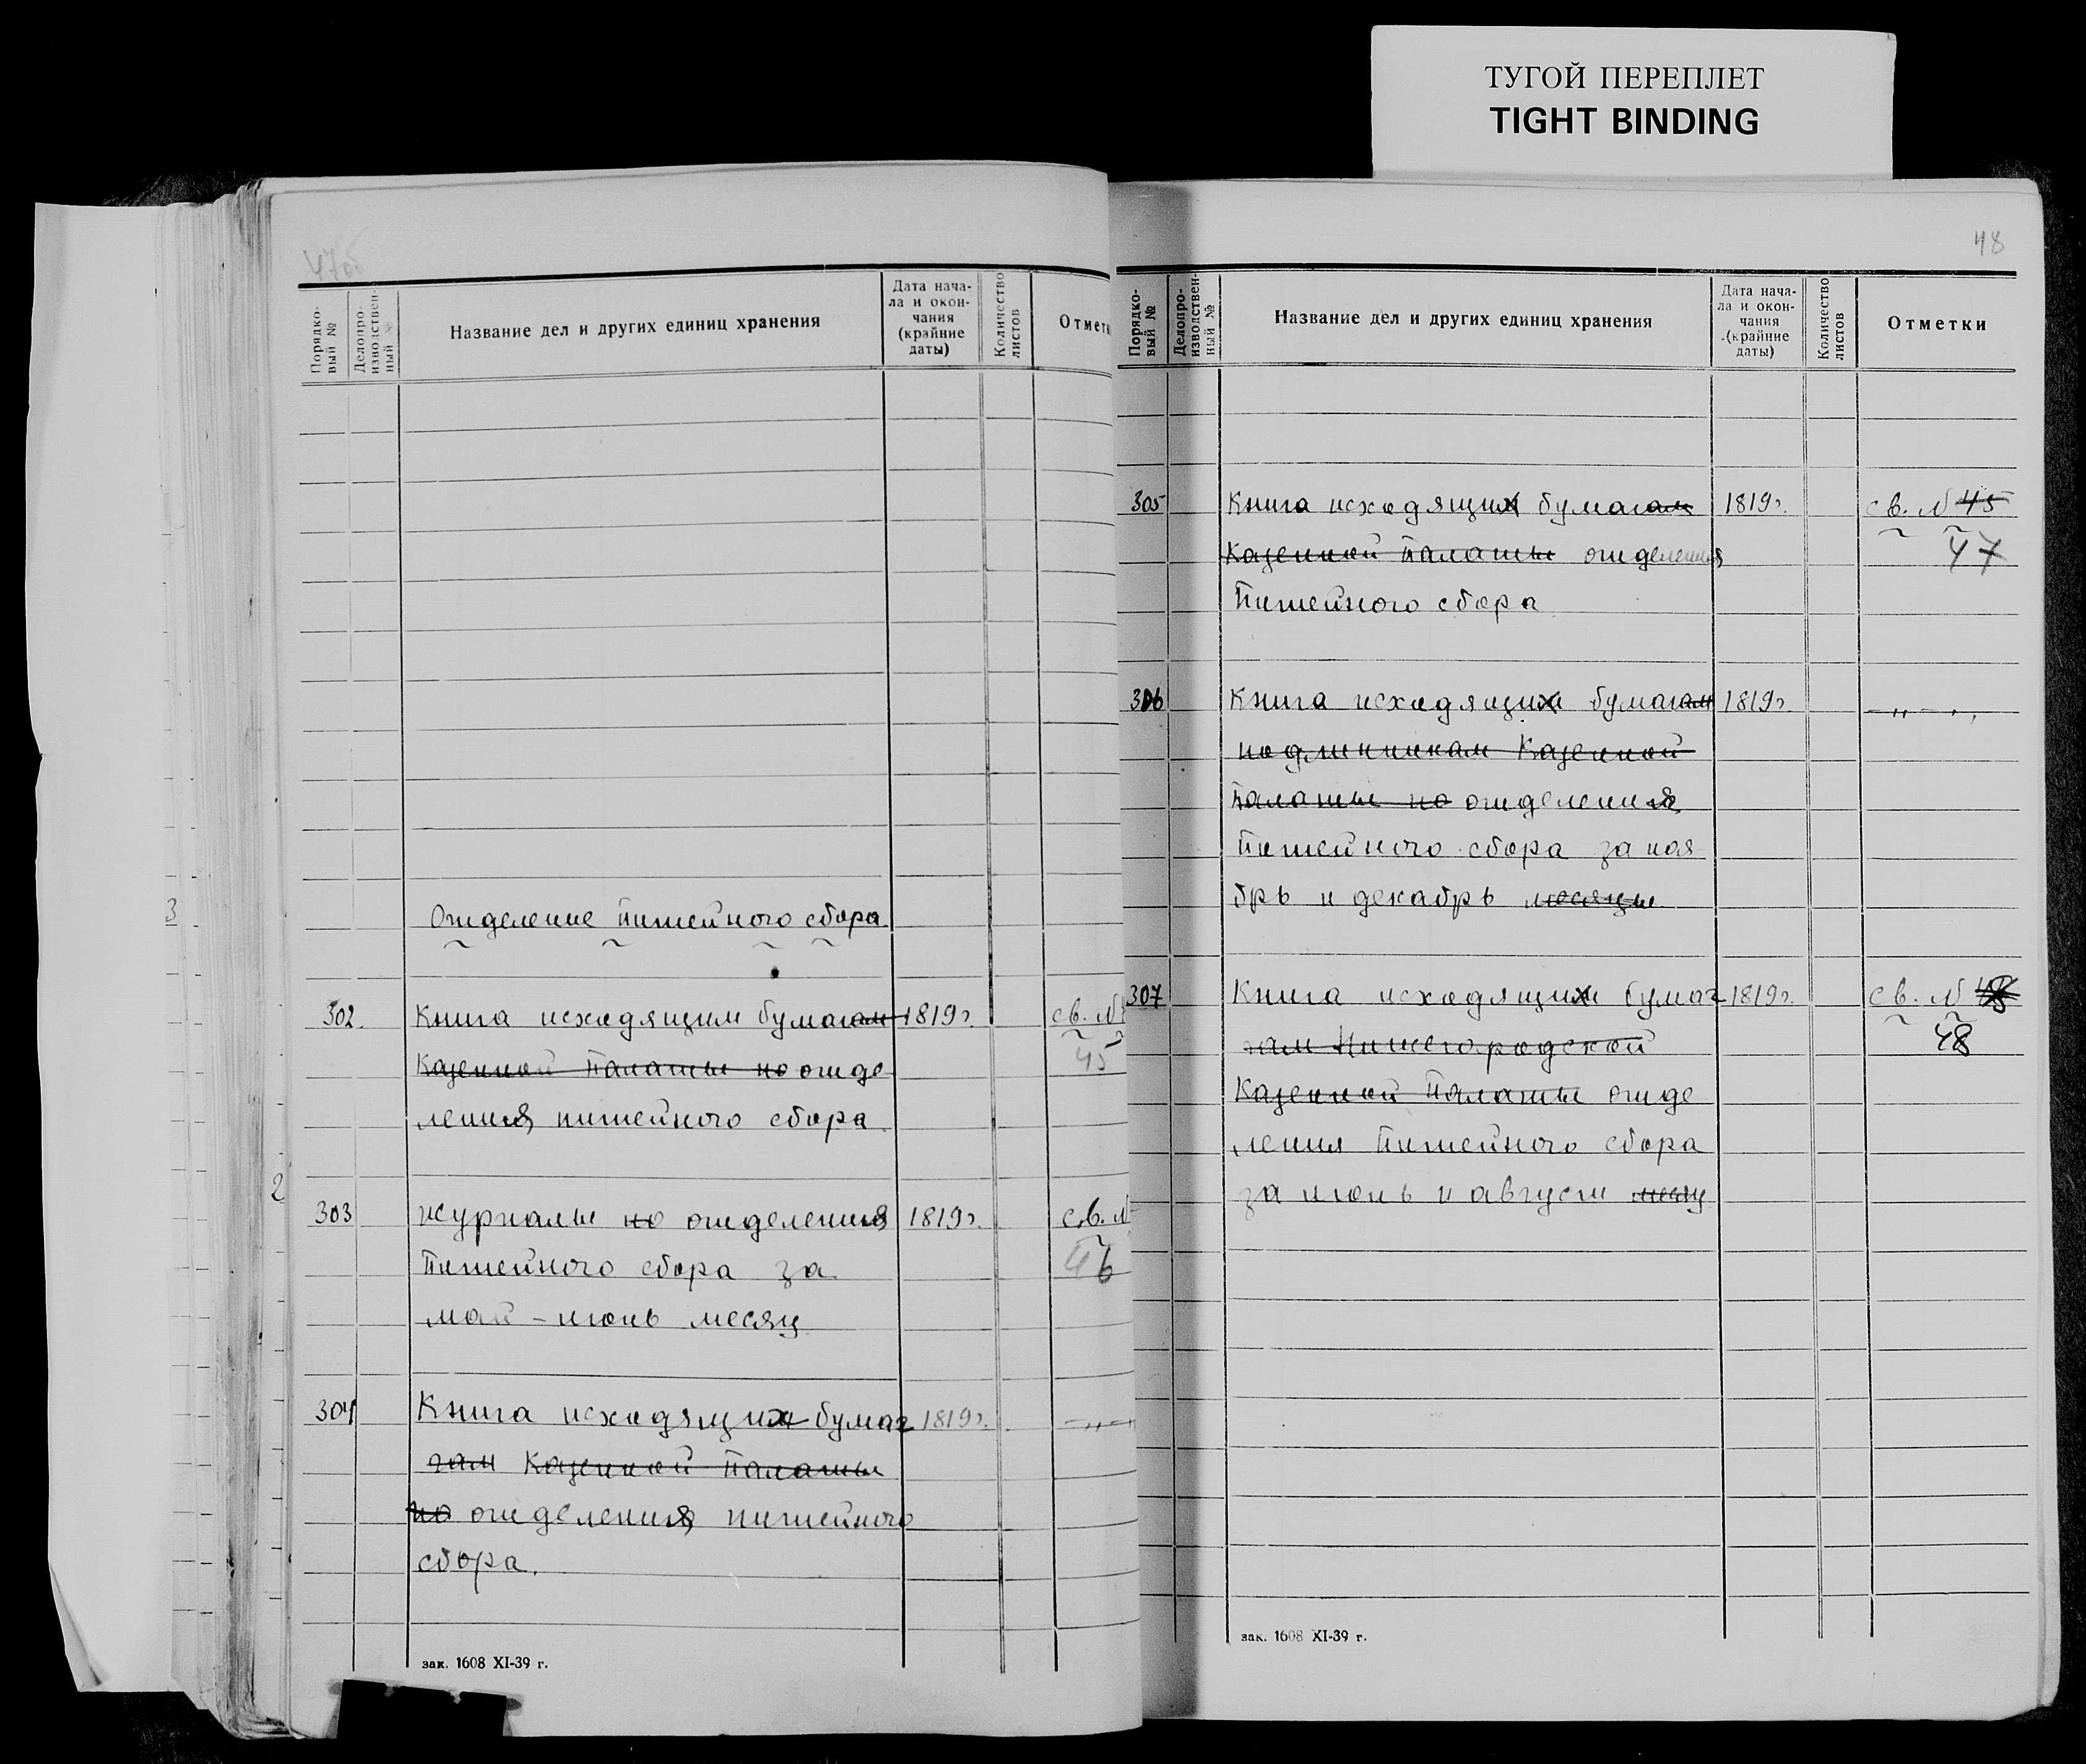 ТУГОЙ ПЕРЕПЛЕТ
TIGHT BINDING
47об
Порядко-
вый №
Делопро-
изводствен-
ный №
Название дел и других единиц хранения
Дата нача-
ла и окон-
чания
(крайние
даты)
Количество
листов
Отметк
Отделение питейного сбора
302. Книга исходящим бумагам 1819г. св. №
Казенной Палаты по отде 45
ления питейного сбора
303 Журналы по отделения 1819г. св. №
Питейного сбора за 46
май - июнь месяц
304 Книга исходящих бумаг 1819г. — „ —
гам Казенной Палаты
по отделения питейного
сбора.
зак. 1608 XI-39 г.
48
Порядко-
вый №
Делопро-
изводствен-
ный №
Название дел и других единиц хранения
Дата нача-
ла и окон-
чания
(крайние
даты)
Количество
листов
Отметки
305 Книга исходящих бумагам 1819г. св. № 45
Казенной Палаты отделения 47
Питейного сбора
306 Книга исходящих бумагам 1819г. — „ —
подлинникам Казенной
Палаты по отделения
Питейного сбора за ноя
брь и декабрь месяцы
307 Книга исходящих бумаг 1819г. св. №
гам Нижегородской 48
Казенной Палаты отде
ления Питейного сбора
за июль и август месяц
зак. 1608 XI-39 г.
3
2